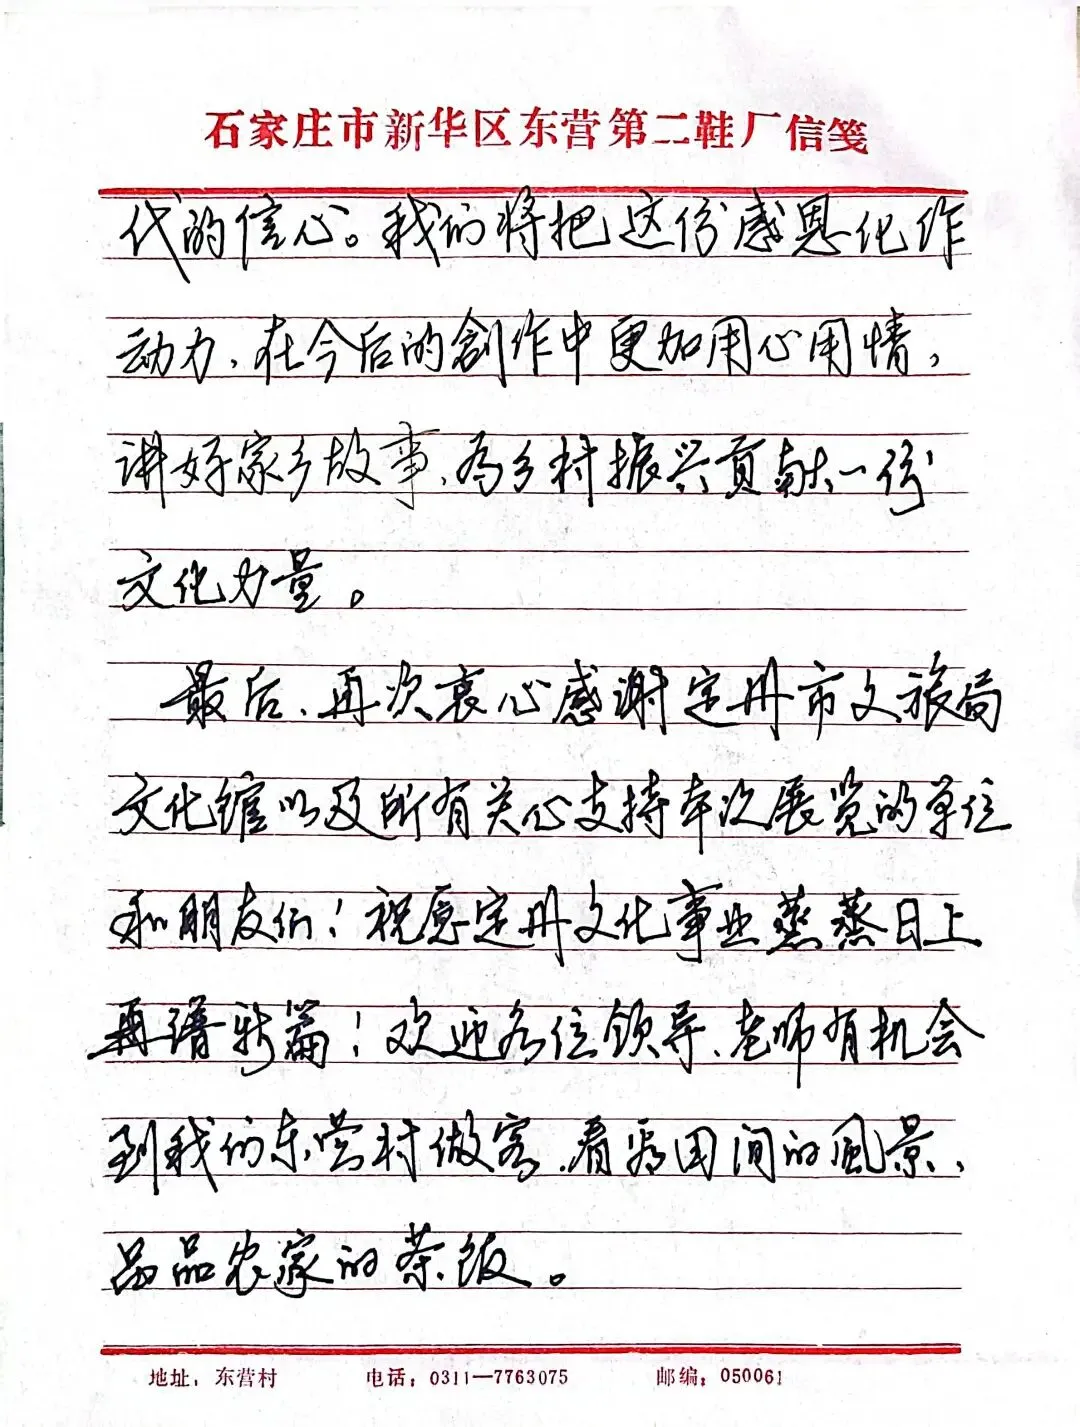 石家庄市新华区东营第二鞋厂信笺
代的信心。我们将把这份感恩化作
动力、在今后的創作中更加用心用情，
讲好家乡故事、为乡村振兴贡献一份
文化力量。
最后、再次衷心感谢定州市文旅局
文化馆以及所有关心支持本次展览的单位
和朋友们！祝愿定州文化事业蒸蒸日上
再谱新篇！欢迎各位领导、老师有机会
到我们东营村做客、看看田间的風景、
品品农家的茶饭。
地址：东营村 电话：0311—7763075 邮编：050061